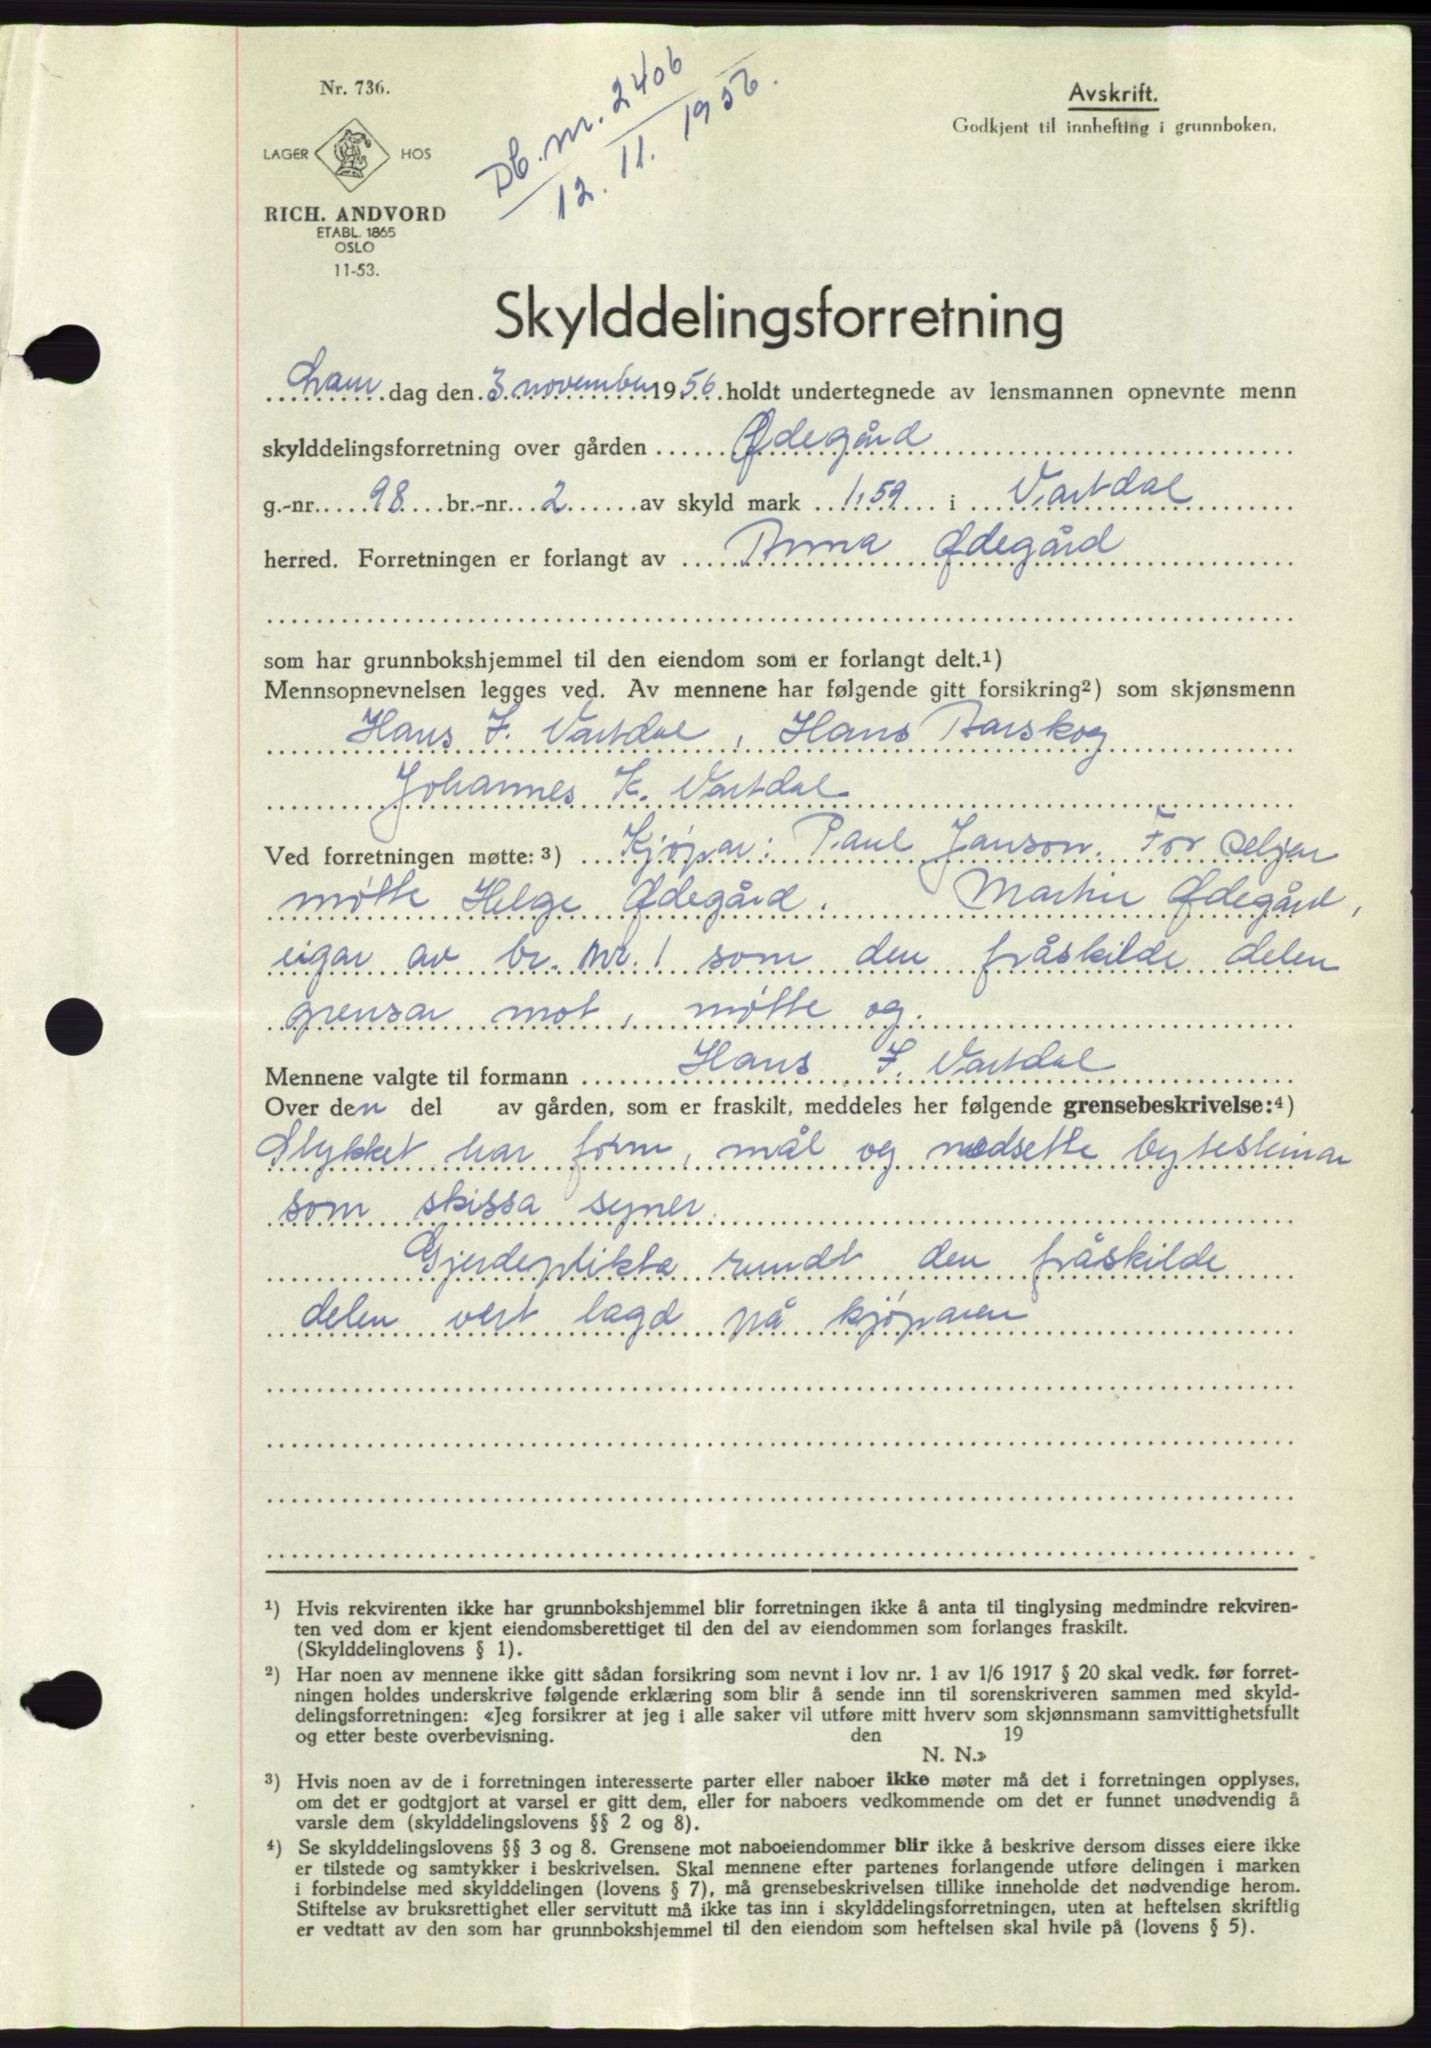 Nr. 736.
Db. nr. 2406
12. 11. 1956.
Avskrift.
Godkjent til innhefting i grunnboken.
LAGER HOS
RICH. ANDVORD
ETABL. 1865
OSLO
11-53.
Skylddelingsforretning
Laur dag den 3 november 1956 holdt undertegnede av lensmannen opnevnte menn
skylddelingsforretning over gården Ødegård
g.-nr. 98 br.-nr. 2 av skyld mark 1,59 i Vartdal
herred. Forretningen er forlangt av Anna Ødegård
som har grunnbokshjemmel til den eiendom som er forlangt delt.¹)
Mennsopnevnelsen legges ved. Av mennene har følgende gitt forsikring²) som skjønsmenn
Hans F. Vartdal, Hans Aarskog
Johannes K. Vartdal
Ved forretningen møtte: ³) Kjøpar: Paul Janson. For seljar
møtte Helge Ødegård. Martin Ødegård,
eigar av br. nr. 1 som den fråskilde delen
grensar mot, møtte og.
Mennene valgte til formann Hans F. Vartdal
Over den del av gården, som er fraskilt, meddeles her følgende grensebeskrivelse: ⁴)
Stykket har form, mål og nedsette bytesteinar
som skissa syner.
Gjerdeplikta rundt den fråskilde
delen vert lagd på kjøparen
¹) Hvis rekvirenten ikke har grunnbokshjemmel blir forretningen ikke å anta til tinglysing medmindre rekviren-
ten ved dom er kjent eiendomsberettiget til den del av eiendommen som forlanges fraskilt.
(Skylddelinglovens § 1).
²) Har noen av mennene ikke gitt sådan forsikring som nevnt i lov nr. 1 av 1/6 1917 § 20 skal vedk. før forret-
ningen holdes underskrive følgende erklæring som blir å sende inn til sorenskriveren sammen med skyld-
delingsforretningen: «Jeg forsikrer at jeg i alle saker vil utføre mitt hverv som skjønnsmann samvittighetsfullt
og etter beste overbevisning. den 19
N. N.»
³) Hvis noen av de i forretningen interesserte parter eller naboer ikke møter må det i forretningen opplyses,
om det er godtgjort at varsel er gitt dem, eller for naboers vedkommende om det er funnet unødvendig å
varsle dem (skylddelingslovens §§ 2 og 8).
⁴) Se skylddelingslovens §§ 3 og 8. Grensene mot naboeiendommer blir ikke å beskrive dersom disses eiere ikke
er tilstede og samtykker i beskrivelsen. Skal mennene efter partenes forlangende utføre delingen i marken
i forbindelse med skylddelingen (lovens § 7), må grensebeskrivelsen tillike inneholde det nødvendige herom.
Stiftelse av bruksrettighet eller servitutt må ikke tas inn i skylddelingsforretningen, uten at heftelsen skriftlig
er vedtatt av den som har grunnbokshjemmel til den eiendom som heftelsen skal hvile på (lovens § 5).